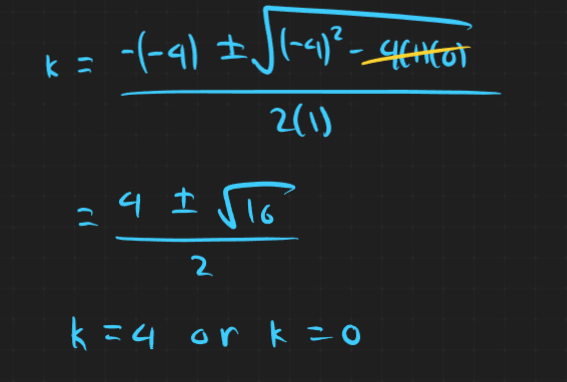 k = (-(-4) ± √((-4)² - 4(1)(0))) / 2(1)
= (4 ± √16) / 2
k = 4 or k = 0